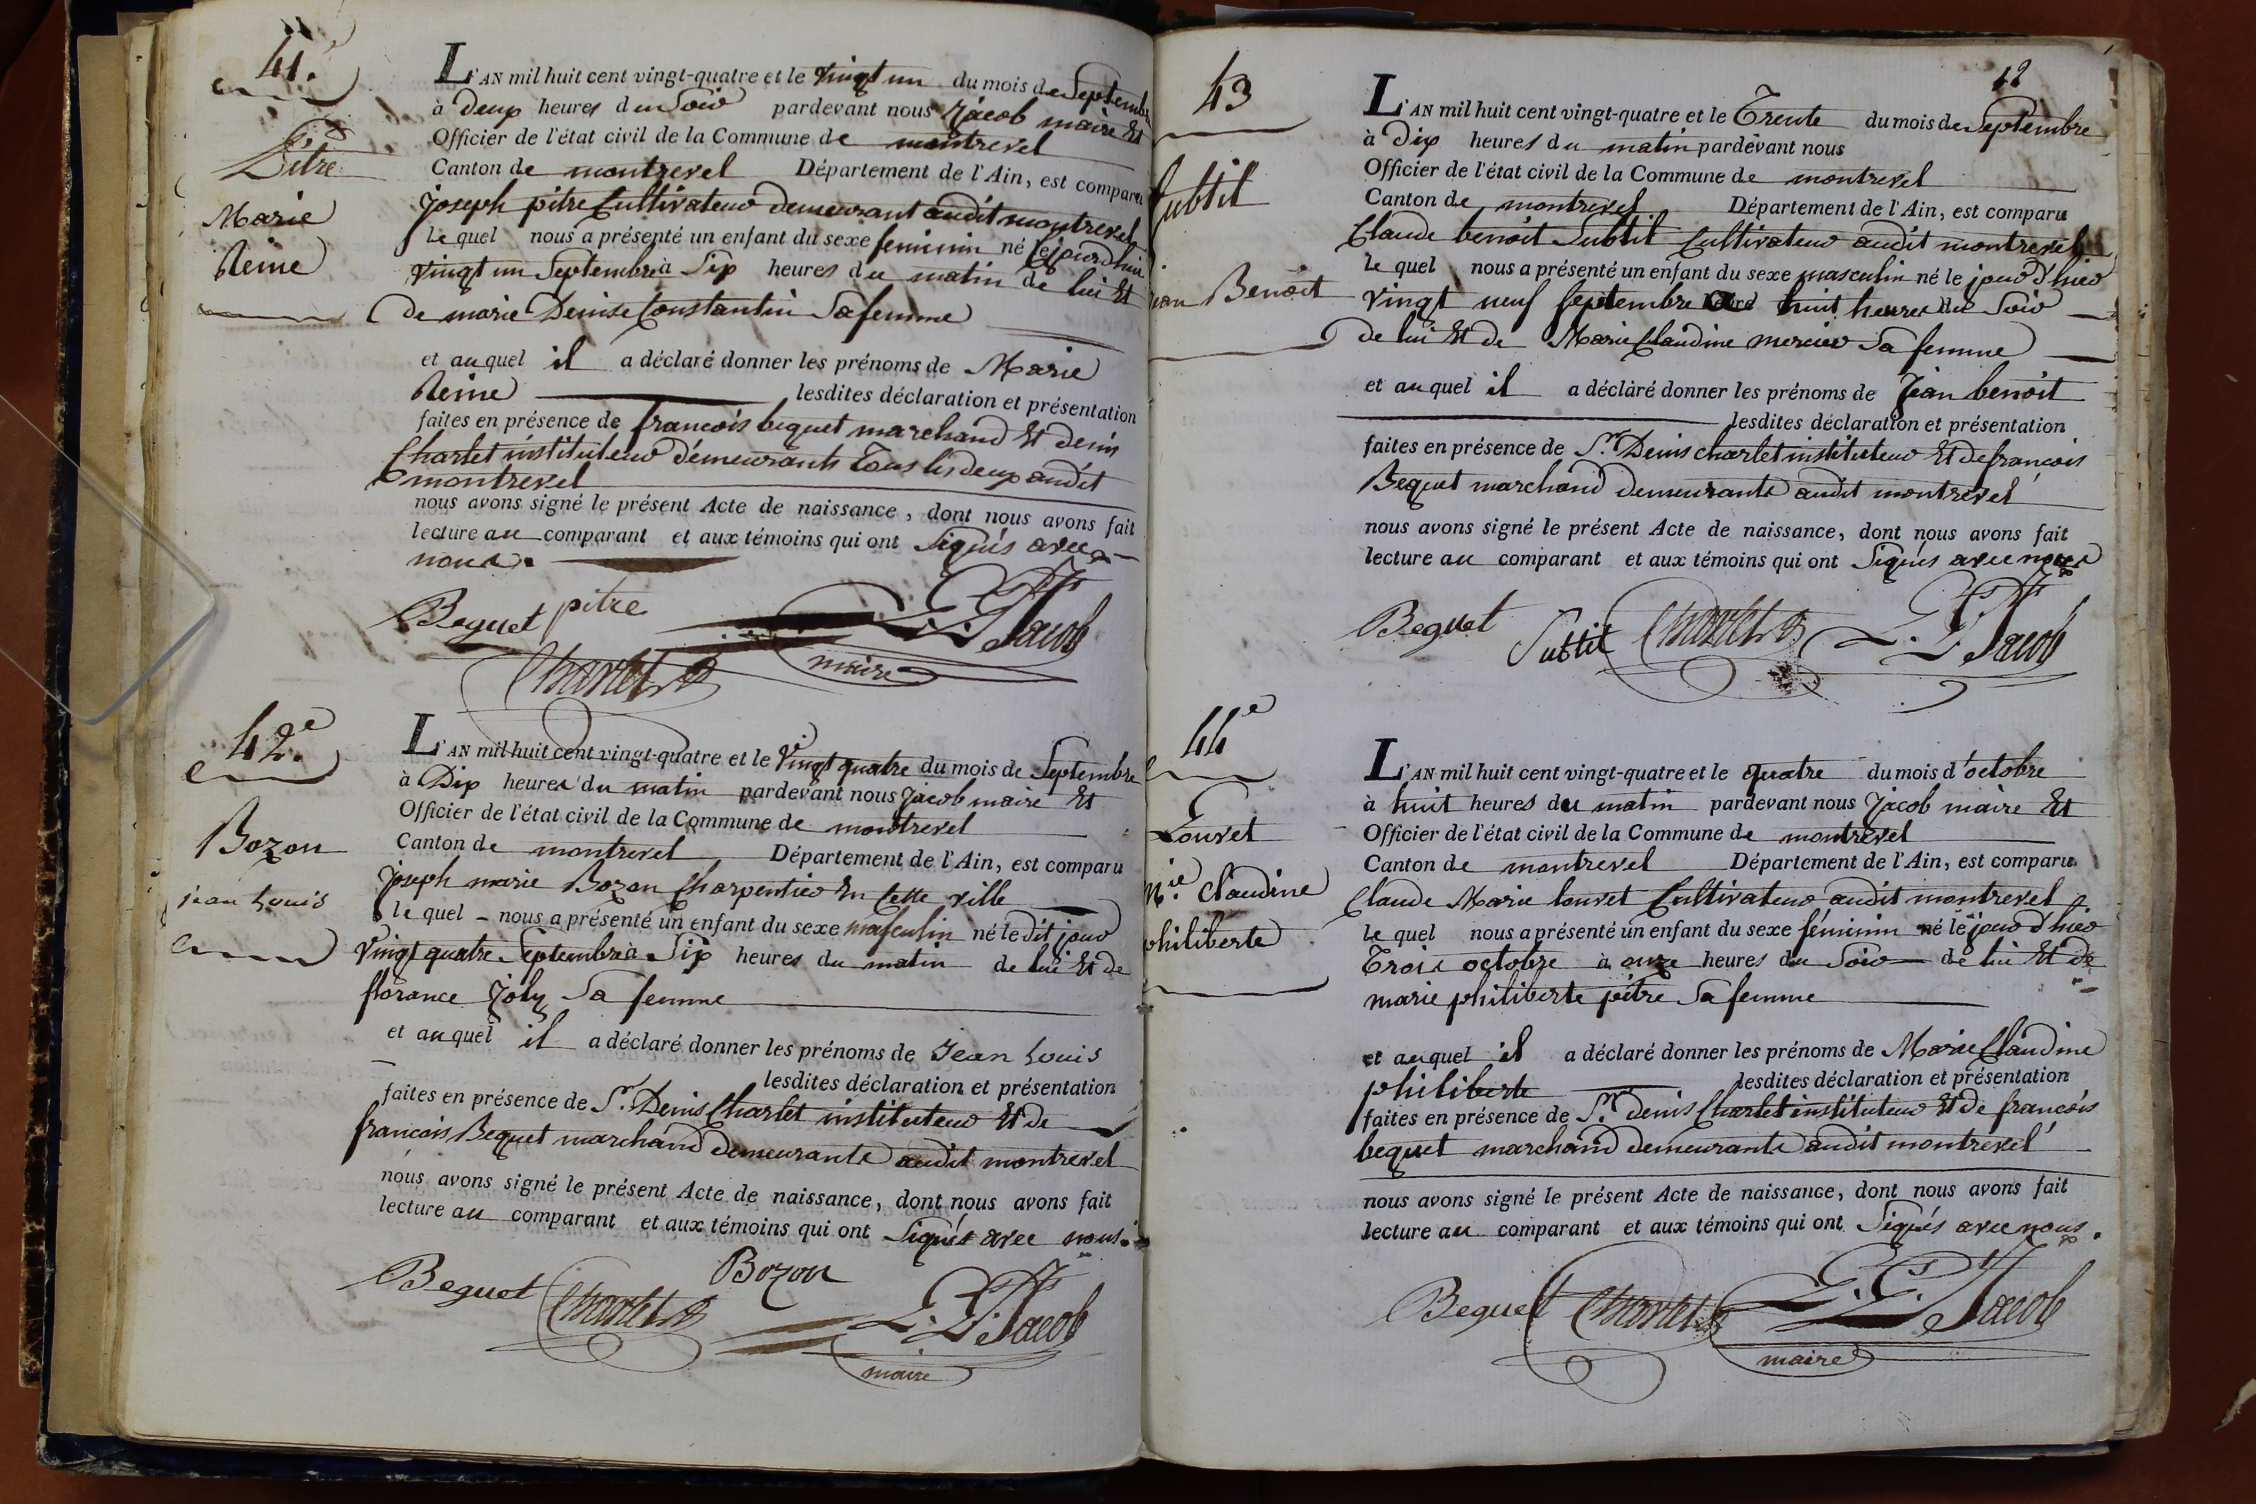 41.e
Pitre
Marie
Reine
L'AN mil huit cent vingt-quatre et le vingt un du mois de Septembre
à deux heures du Soir pardevant nous Jacob maire Et
Officier de l'état civil de la Commune de montrevel
Canton de montrevel Département de l'Ain, est comparu
Joseph pitre Cultivateur demeurant audit montrevel
le quel nous a présenté un enfant du sexe feminin né cejourdhui
vingt un Septembre à Six heures du matin de lui Et
de marie Denise Constantin Sa femme
et auquel il a déclaré donner les prénoms de Marie
Reine lesdites déclaration et présentation
faites en présence de francois bequet marchand Et denis
Charlet instituteur demeurants Tous les deux audit
montrevel
nous avons signé le présent Acte de naissance, dont nous avons fait
lecture au comparant et aux témoins qui ont Signés avec
nous.
Bequet pitre
Jacob
Charlet
maire
42.e
Bozon
jean Louis
L'AN mil huit cent vingt-quatre et le Vingt quatre du mois de Septembre
à Dix heures du matin pardevant nous Jacob maire Et
Officier de l'état civil de la Commune de montrevel
Canton de montrevel Département de l'Ain, est comparu
Joseph marie Bozon Charpentier En Cette ville
le quel nous a présenté un enfant du sexe masculin né ledit jour
Vingt quatre Septembre à Six heures du matin de lui Et de
florance Joly Sa femme
et auquel il a déclaré donner les prénoms de Jean Louis
lesdites déclaration et présentation
faites en présence de Sr. Denis Charlet instituteur Et de
francois Bequet marchand demeurants audit montrevel
nous avons signé le présent Acte de naissance, dont nous avons fait
lecture au comparant et aux témoins qui ont Signés avec nous.
Bozon
Bequet Charlet Jacob
maire
42
43
Subtil
jean Benoit
L'AN mil huit cent vingt-quatre et le Trente du mois de Septembre
à Dix heures du matin pardevant nous
Officier de l'état civil de la Commune de montrevel
Canton de montrevel Département de l'Ain, est comparu
Claude benoit Subtil Cultivateur audit montrevel
le quel nous a présenté un enfant du sexe masculin né le jour d'hier
vingt neuf Septembre à huit heures du Soir
de lui Et de Marie Claudine mercier Sa femme
et auquel il a déclaré donner les prénoms de Jean benoit
lesdites déclaration et présentation
faites en présence de Sr. Denis charlet instituteur Et de francois
Bequet marchand demeurants audit montrevel
nous avons signé le présent Acte de naissance, dont nous avons fait
lecture au comparant et aux témoins qui ont Signés avec nous
Bequet Subtil Charlet Jacob
44e
Louvet
Mie. Claudine
philiberte
L'AN mil huit cent vingt-quatre et le quatre du mois d'octobre
à huit heures du matin pardevant nous Jacob maire Et
Officier de l'état civil de la Commune de montrevel
Canton de montrevel Département de l'Ain, est comparu
Claude Marie louvet Cultivateur audit montrevel
le quel nous a présenté un enfant du sexe féminin né le jour d'hier
Trois octobre à onze heures du Soir de lui Et de
marie philiberte pitre Sa femme
et auquel il a déclaré donner les prénoms de Marie Claudine
philiberte lesdites déclaration et présentation
faites en présence de Sr. denis Charlet instituteur Et de francois
bequet marchand demeurants audit montrevel
nous avons signé le présent Acte de naissance, dont nous avons fait
lecture au comparant et aux témoins qui ont Signés avec nous.
Bequet Charlet Jacob
maire